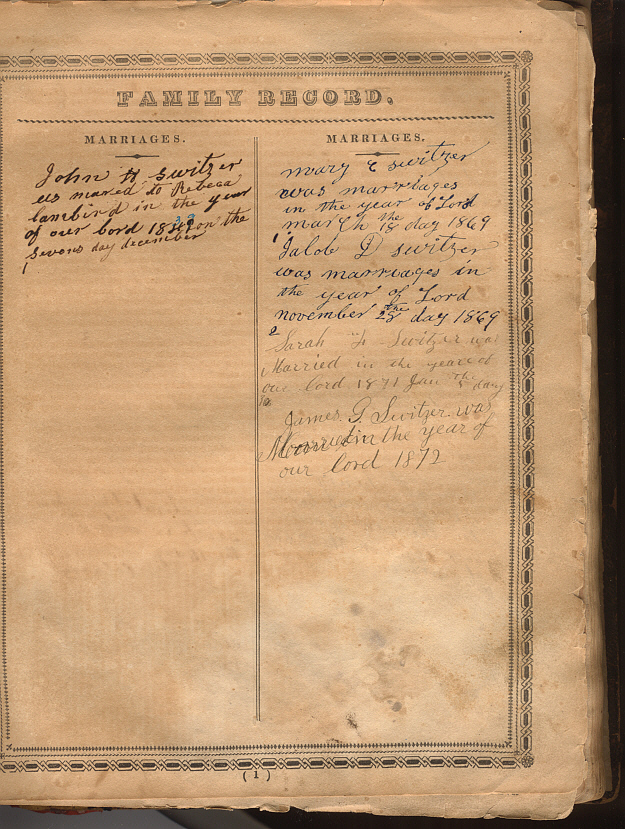 FAMILY RECORD.
MARRIAGES.
John H Switzer
us maried to Rebeca
lambird in the year
of our lord 18 on the
sevons day december
1
MARRIAGES.
mary E switzer
was marriages
in the year of Lord
march the 18 day 1869
1
Jalob D switzer
was marriages in
the year of Lord
november the 28 day 1869
2
Sarah Switzer was
Married in the year of
our lord 1871 Jan the day
James. G. Switzer was
Married in the year of
our lord 1872
( 1 )